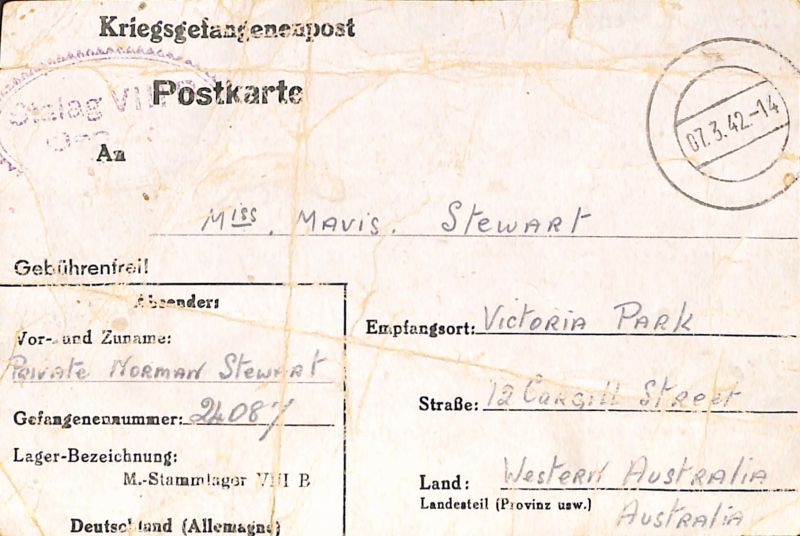 Kriegsgefangenenpost
Stalag VIII
Postkarte
07.3.42.-14
An
Miss. Mavis. Stewart
Gebührenfrei!
Absender:
Vor- und Zuname:
Private Norman Stewart
Gefangenennummer: 24087
Lager-Bezeichnung:
M.-Stammlager VIII B
Deutschland (Allemagne)
Empfangsort: Victoria Park
Straße: 12 Cargill Street
Land: Western Australia
Landesteil (Provinz usw.)
Australia